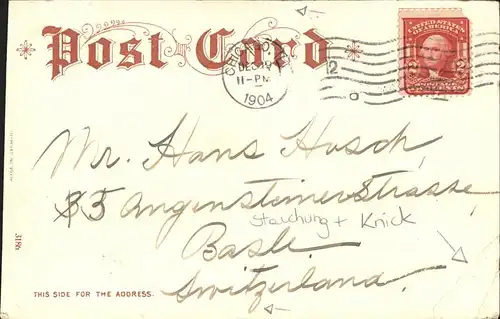 Post Card
CHICAGO, ILL.
DEC 19
11-PM
1904
12
UNITED STATES OF AMERICA
2 2
POSTAGE
TWO CENTS
Mr. Hans Hosch,
35 Angensteinerstrasse
Stauchung + Knick
Basle
Switzerland.
318b
THIS SIDE FOR THE ADDRESS.